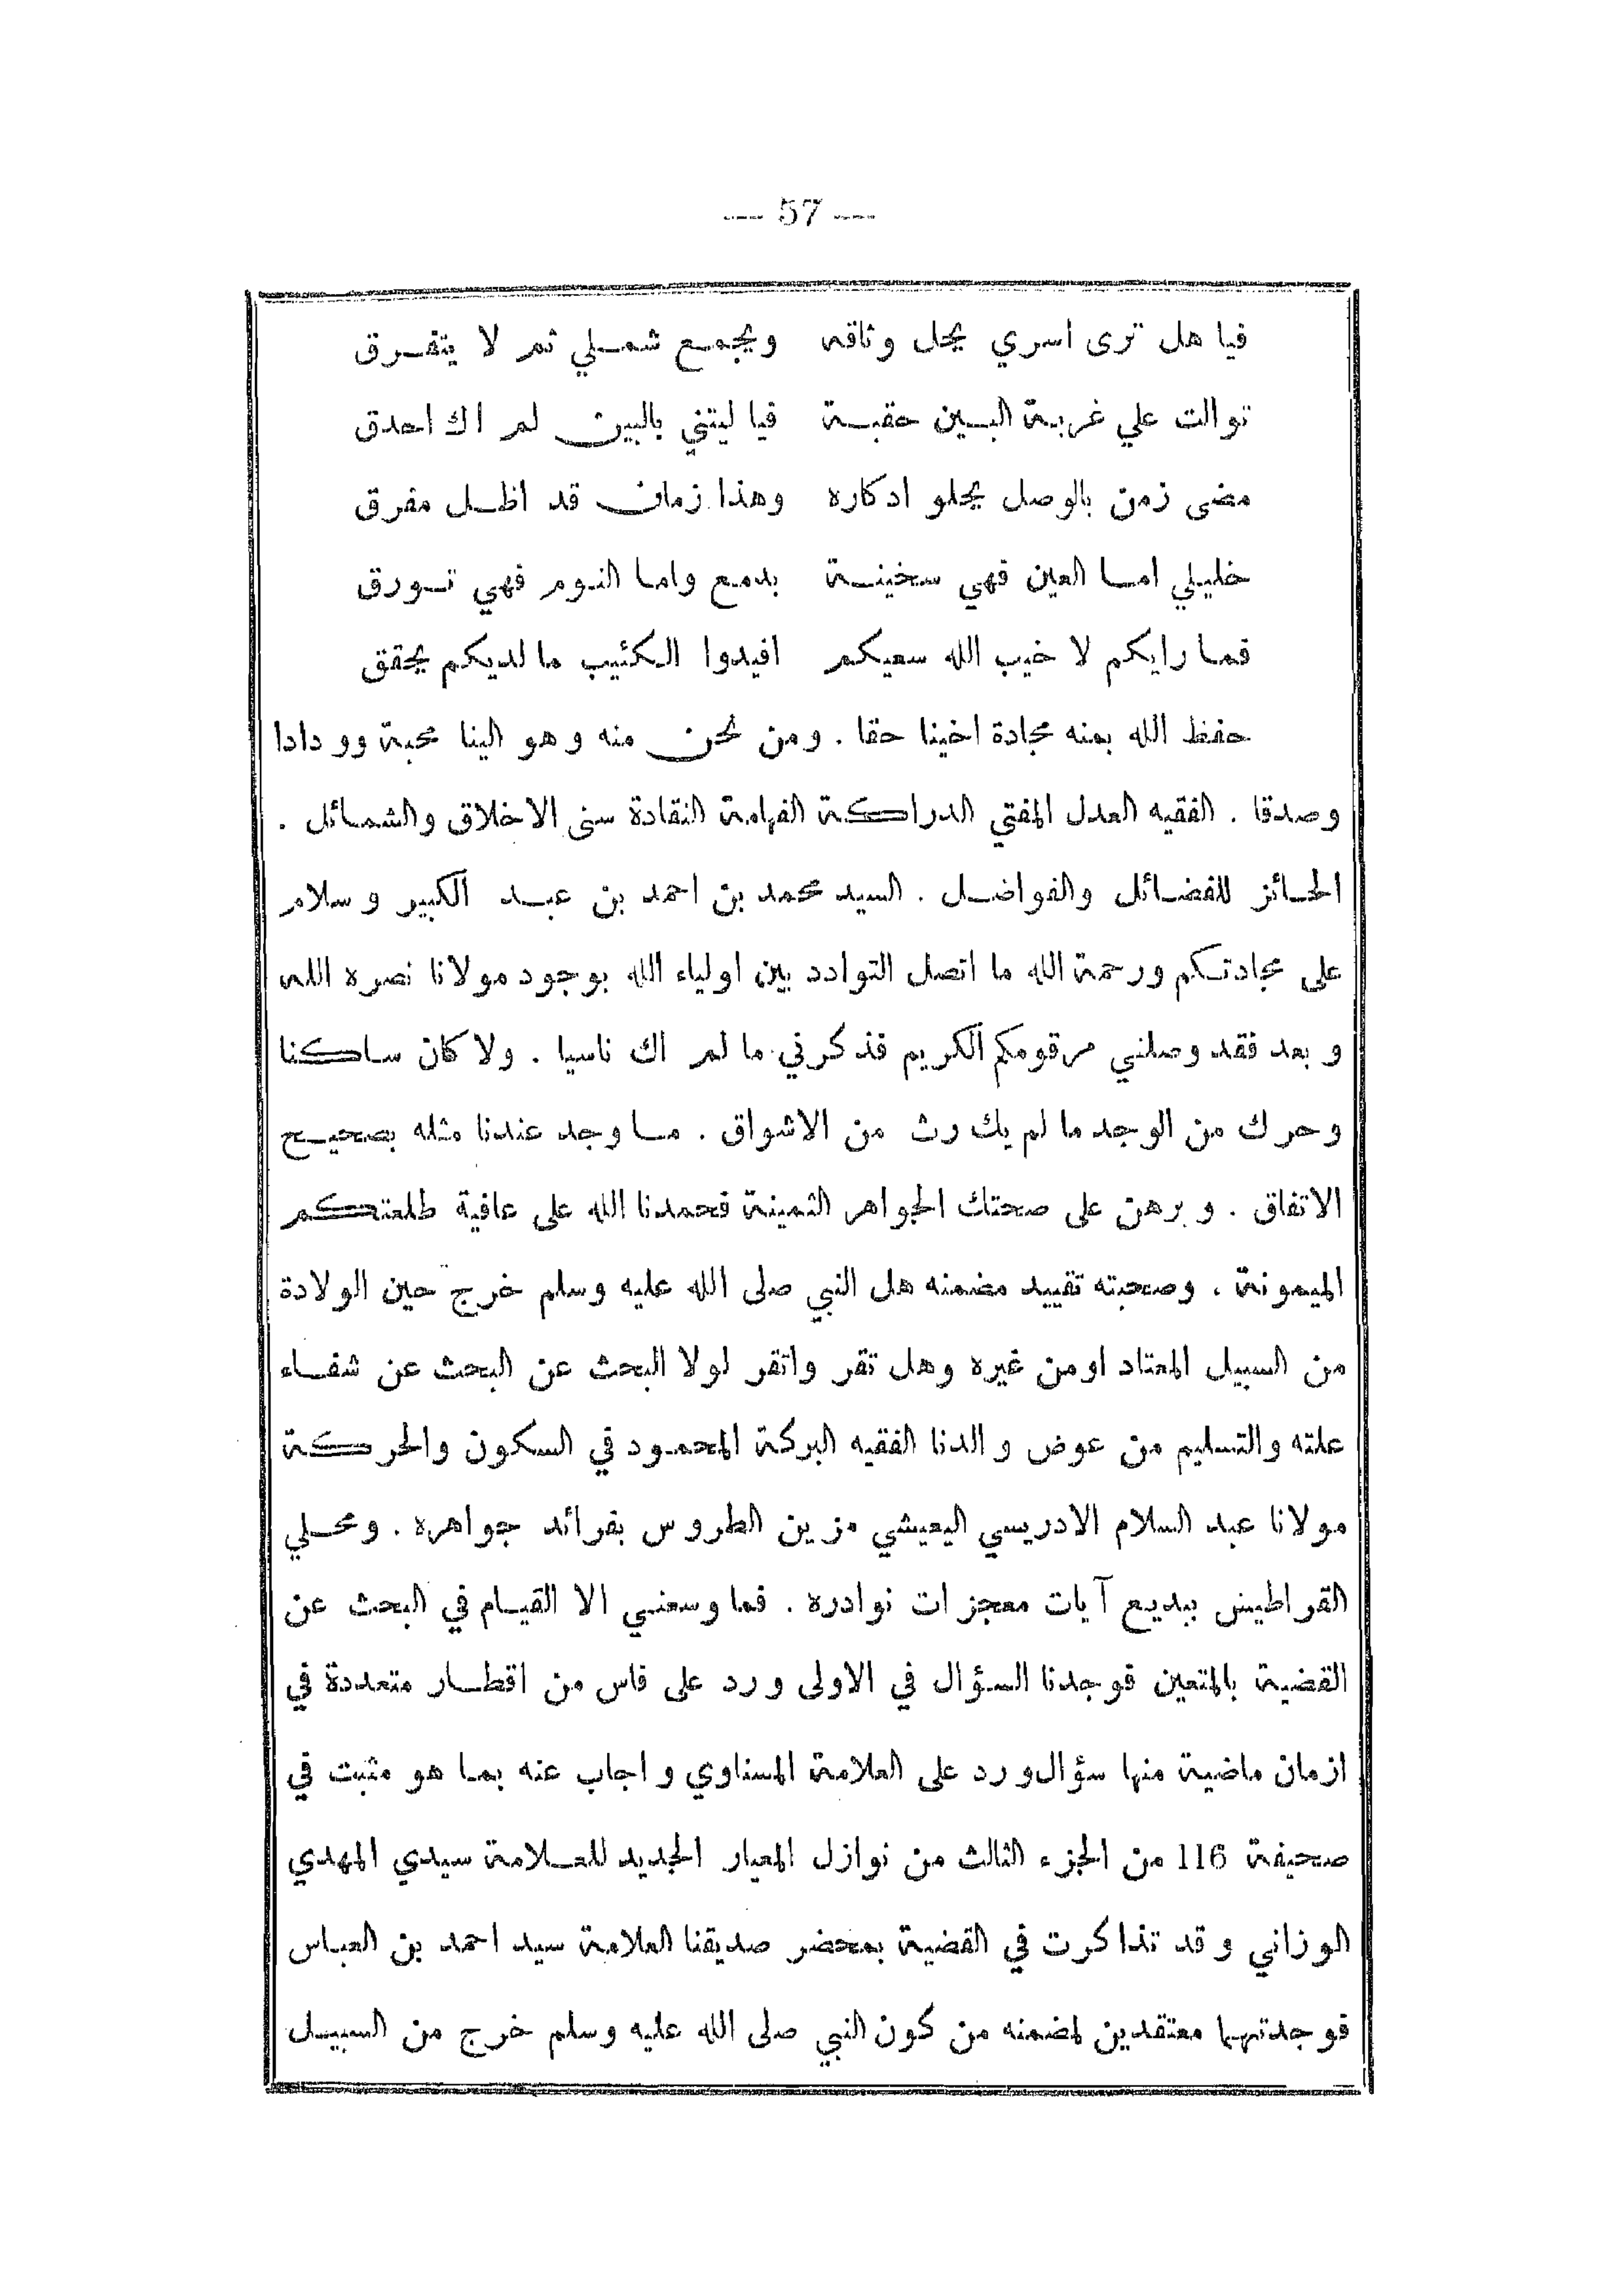 — 57 —
فيا هل ترى اسري يحل وثاقه ويجمع شملي ثم لا يتفرق
توالت علي غربة البين حقبة فيا ليتني بالبين لم اك احدق
مضى زمن بالوصل يحلو ادكاره وهذا زمان قد اظل مفرق
خليلي اما العين فهي سخينة بدمع واما النوم فهي تورق
فما رايكم لا خيب الله سعيكم افيدوا الكئيب ما لديكم يحقق
حفظ الله بمنه مجادة اخينا حقا . ومن نحن منه وهو الينا محبة وودادا
وصدقا . الفقيه العدل المفتي الدراكة الفهامة النقادة سنى الاخلاق والشمائل .
الحائز للفضائل والفواضل . السيد محمد بن احمد بن عبد الكبير وسلام
على مجادتكم ورحمة الله ما اتصل التوادد بين اولياء الله بوجود مولانا نصره الله
وبعد فقد وصلني مرقومكم الكريم فذكرني ما لم اك ناسيا . ولا كان ساكنا
وحرك من الوجد ما لم يك رث من الاشواق . ما وجد عندنا مثله بصحيح
الاتفاق . وبرهن على صحتك الجواهر الثمينة فحمدنا الله على عافية طلعتكم
الميمونة . وصحبته تقييد مضمنه هل النبي صلى الله عليه وسلم خرج حين الولادة
من السبيل المعتاد اومن غيره وهل تقر واتقر لولا البحث عن البحث عن شفاء
علته والتسليم من عوض والدنا الفقيه البركة المحمود في السكون والحركة
مولانا عبد السلام الادريسي اليعيشي مزين الطروس بفرائد جواهره . ومحلي
القراطيس ببديع آيات معجزات نوادره . فما وسعني الا القيام في البحث عن
القضية بالمتعين فوجدنا السؤال في الاولى ورد على فاس من اقطار متعددة في
ازمان ماضية منها سؤال ورد على العلامة المسناوي واجاب عنه بما هو مثبت في
صحيفة 116 من الجزء الثالث من نوازل المعيار الجديد للعلامة سيدي المهدي
الوزاني وقد تذاكرت في القضية بمحضر صديقنا العلامة سيد احمد بن العباس
فوجدتهما معتقدين لمضمنه من كون النبي صلى الله عليه وسلم خرج من السبيل